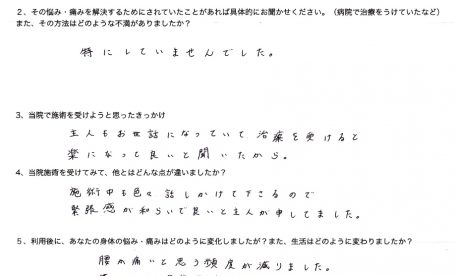 ２、その悩み・痛みを解決するためにされていたことがあれば具体的にお聞かせください。（病院で治療をうけていたなど）
また、その方法はどのような不満がありましたか？
特にしていませんでした。
３、当院で施術を受けようと思ったきっかけ
主人もお世話になっていて治療を受けると
楽になって良いと聞いたから。
４、当院施術を受けてみて、他とはどんな点が違いましたか？
施術中も色々話しかけて下さるので
緊張感が和らいで良いと主人が申してました。
５、利用後に、あなたの身体の悩み・痛みはどのように変化しましたが？また、生活はどのように変わりましたか？
腰が痛いと思う頻度が減りました。